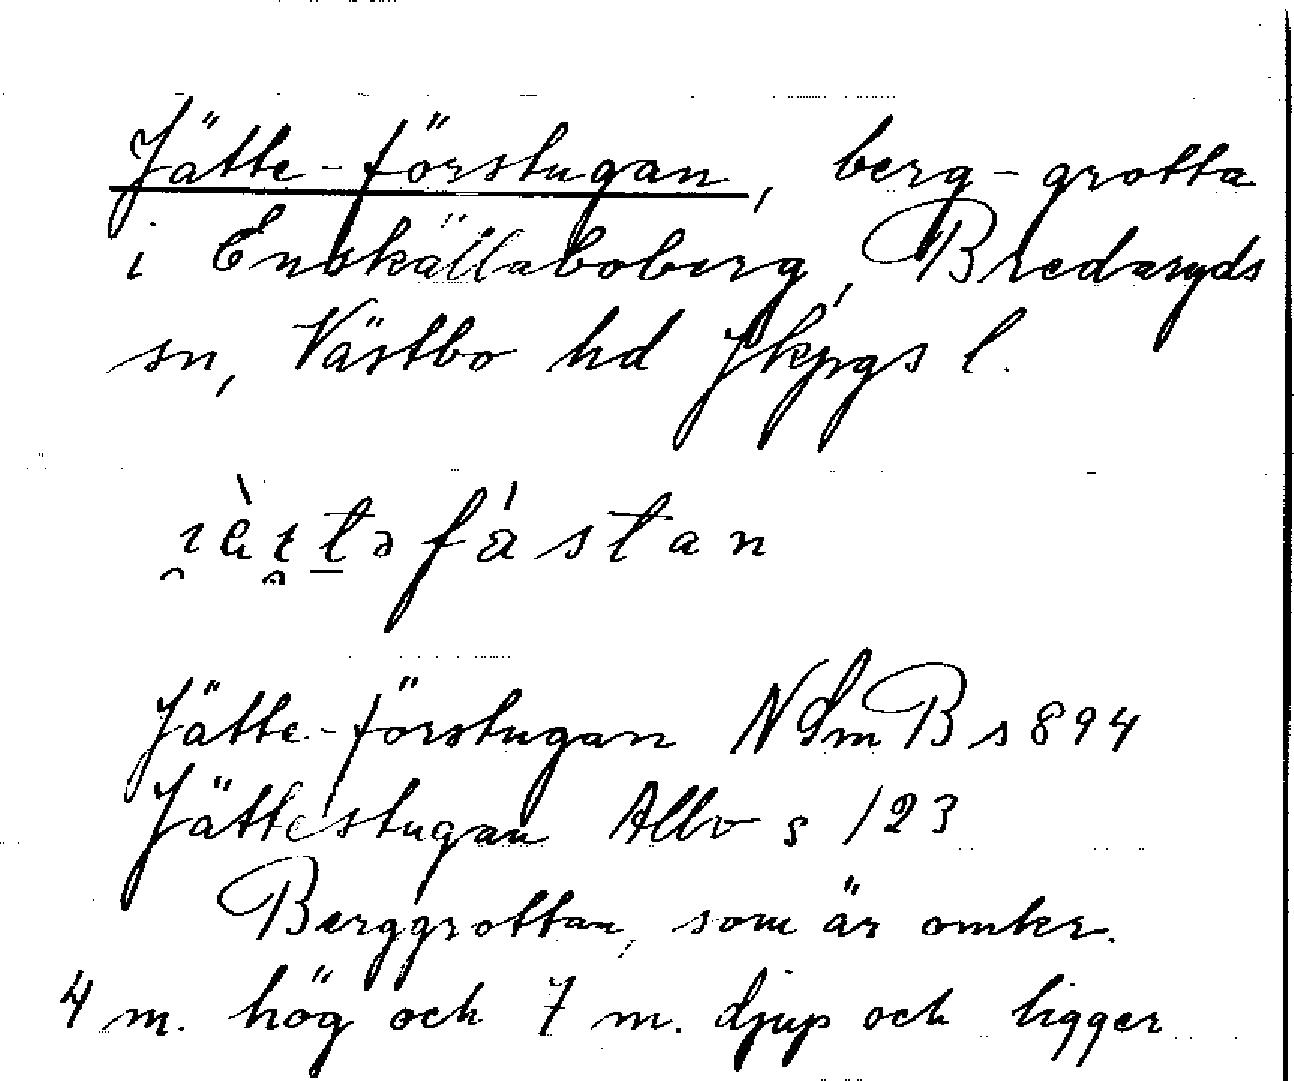 Jätte-förstugan, berg-grotta
i Enskällaboberg, Bredaryds
sn, Västbo hd Jkpgs l.
Jätte-förstugan NSmB s 894
Jättestugan Allvo s 123
Berggrottan, som är omkr.
4 m. hög och 7 m. djup och ligger